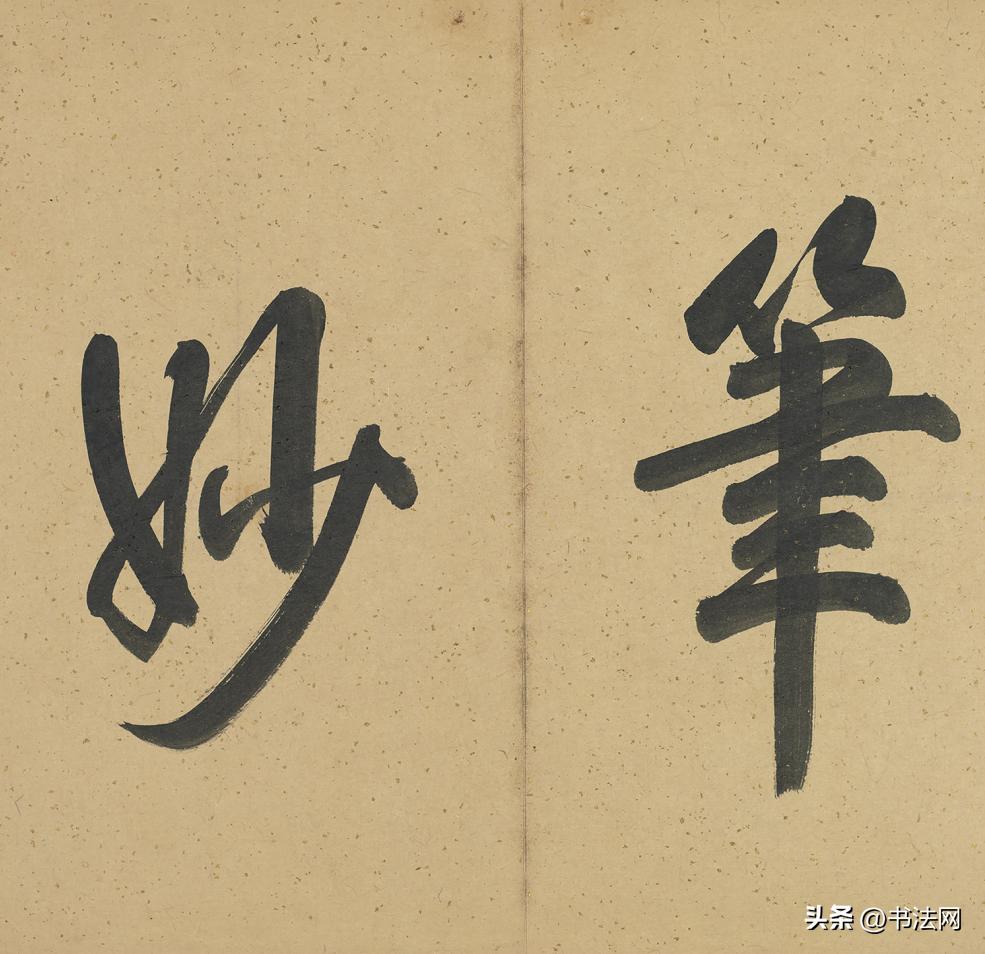 筆
妙
头条 @书法网